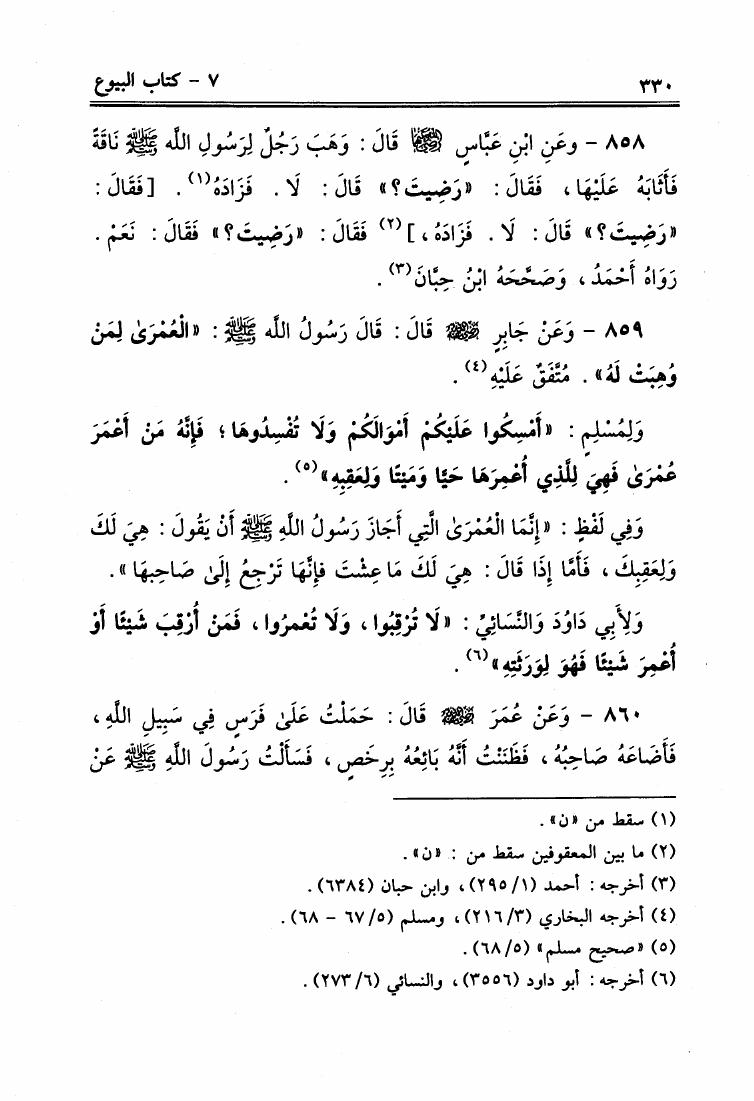 ٣٣٠ ٧ - كتاب البيوع
٨٥٨ - وعَنِ ابْنِ عَبَّاسٍ ﵄ قَالَ: وَهَبَ رَجُلٌ لِرَسُولِ اللَّه ﷺ نَاقَةً
فَأَثَابَهُ عَلَيْهَا، فَقَالَ: «رَضِيتَ؟» قَالَ: لَا. فَزَادَهُ(١). [فَقَالَ:
«رَضِيتَ؟» قَالَ: لَا. فَزَادَهُ،](٢) فَقَالَ: «رَضِيتَ؟» فَقَالَ: نَعَمْ.
رَوَاهُ أَحْمَدُ، وَصَحَّحَهُ ابْنُ حِبَّانَ(٣).
٨٥٩ - وَعَنْ جَابِرٍ ﵁ قَالَ: قَالَ رَسُولُ اللَّه ﷺ: «الْعُمْرَىٰ لِمَنْ
وُهِبَتْ لَهُ». مُتَّفَقٌ عَلَيْهِ(٤).
وَلِمُسْلِمٍ: «أَمْسِكُوا عَلَيْكُمْ أَمْوَالَكُمْ وَلَا تُفْسِدُوهَا؛ فَإِنَّهُ مَنْ أَعْمَرَ
عُمْرَىٰ فَهِيَ لِلَّذِي أُعْمِرَهَا حَيًّا وَمَيْتًا وَلِعَقِبِهِ»(٥).
وَفِي لَفْظٍ: «إِنَّمَا الْعُمْرَىٰ الَّتِي أَجَازَ رَسُولُ اللَّهِ ﷺ أَنْ يَقُولَ: هِيَ لَكَ
وَلِعَقِبِكَ، فَأَمَّا إِذَا قَالَ: هِيَ لَكَ مَا عِشْتَ فَإِنَّهَا تَرْجِعُ إِلَىٰ صَاحِبِهَا».
وَلِأَبِي دَاوُدَ وَالنَّسَائِيِّ: «لَا تُرْقِبُوا، وَلَا تُعْمِرُوا، فَمَنْ أُرْقِبَ شَيْئًا أَوْ
أُعْمِرَ شَيْئًا فَهُوَ لِوَرَثَتِهِ»(٦).
٨٦٠ - وَعَنْ عُمَرَ ﵁ قَالَ: حَمَلْتُ عَلَىٰ فَرَسٍ فِي سَبِيلِ اللَّهِ،
فَأَضَاعَهُ صَاحِبُهُ، فَظَنَنْتُ أَنَّهُ بَائِعُهُ بِرِخَصٍ، فَسَأَلْتُ رَسُولَ اللَّهِ ﷺ عَنْ
(١) سقط من «ن».
(٢) ما بين المعقوفين سقط من: «ن».
(٣) أخرجه: أحمد (١/ ٢٩٥)، وابن حبان (٦٣٨٤).
(٤) أخرجه البخاري (٣/ ٢١٦)، ومسلم (٥/ ٦٧ - ٦٨).
(٥) «صحيح مسلم» (٥/ ٦٨).
(٦) أخرجه: أبو داود (٣٥٥٦)، والنسائي (٦/ ٢٧٣).